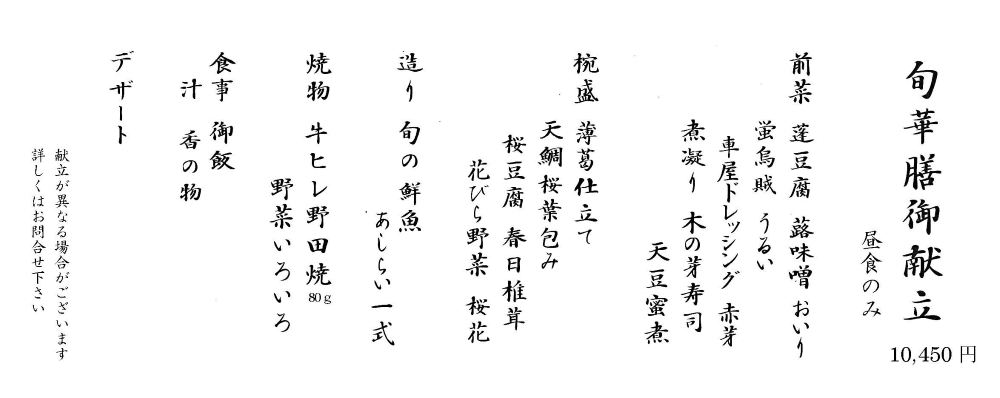 旬華膳御献立
昼食のみ
10,450 円
前菜 蓬豆腐 蕗味噌 おいり
蛍烏賊 うるい
車屋ドレッシング 赤芽
煮凝り 木の芽寿司
天豆蜜煮
椀盛 薄葛仕立て
天鯛桜葉包み
桜豆腐 春日椎茸
花びら野菜 桜花
造り 旬の鮮魚
あしらい一式
焼物 牛ヒレ野田焼 80g
野菜いろいろ
食事 御飯
汁 香の物
デザート
献立が異なる場合がございます
詳しくはお問合せ下さい